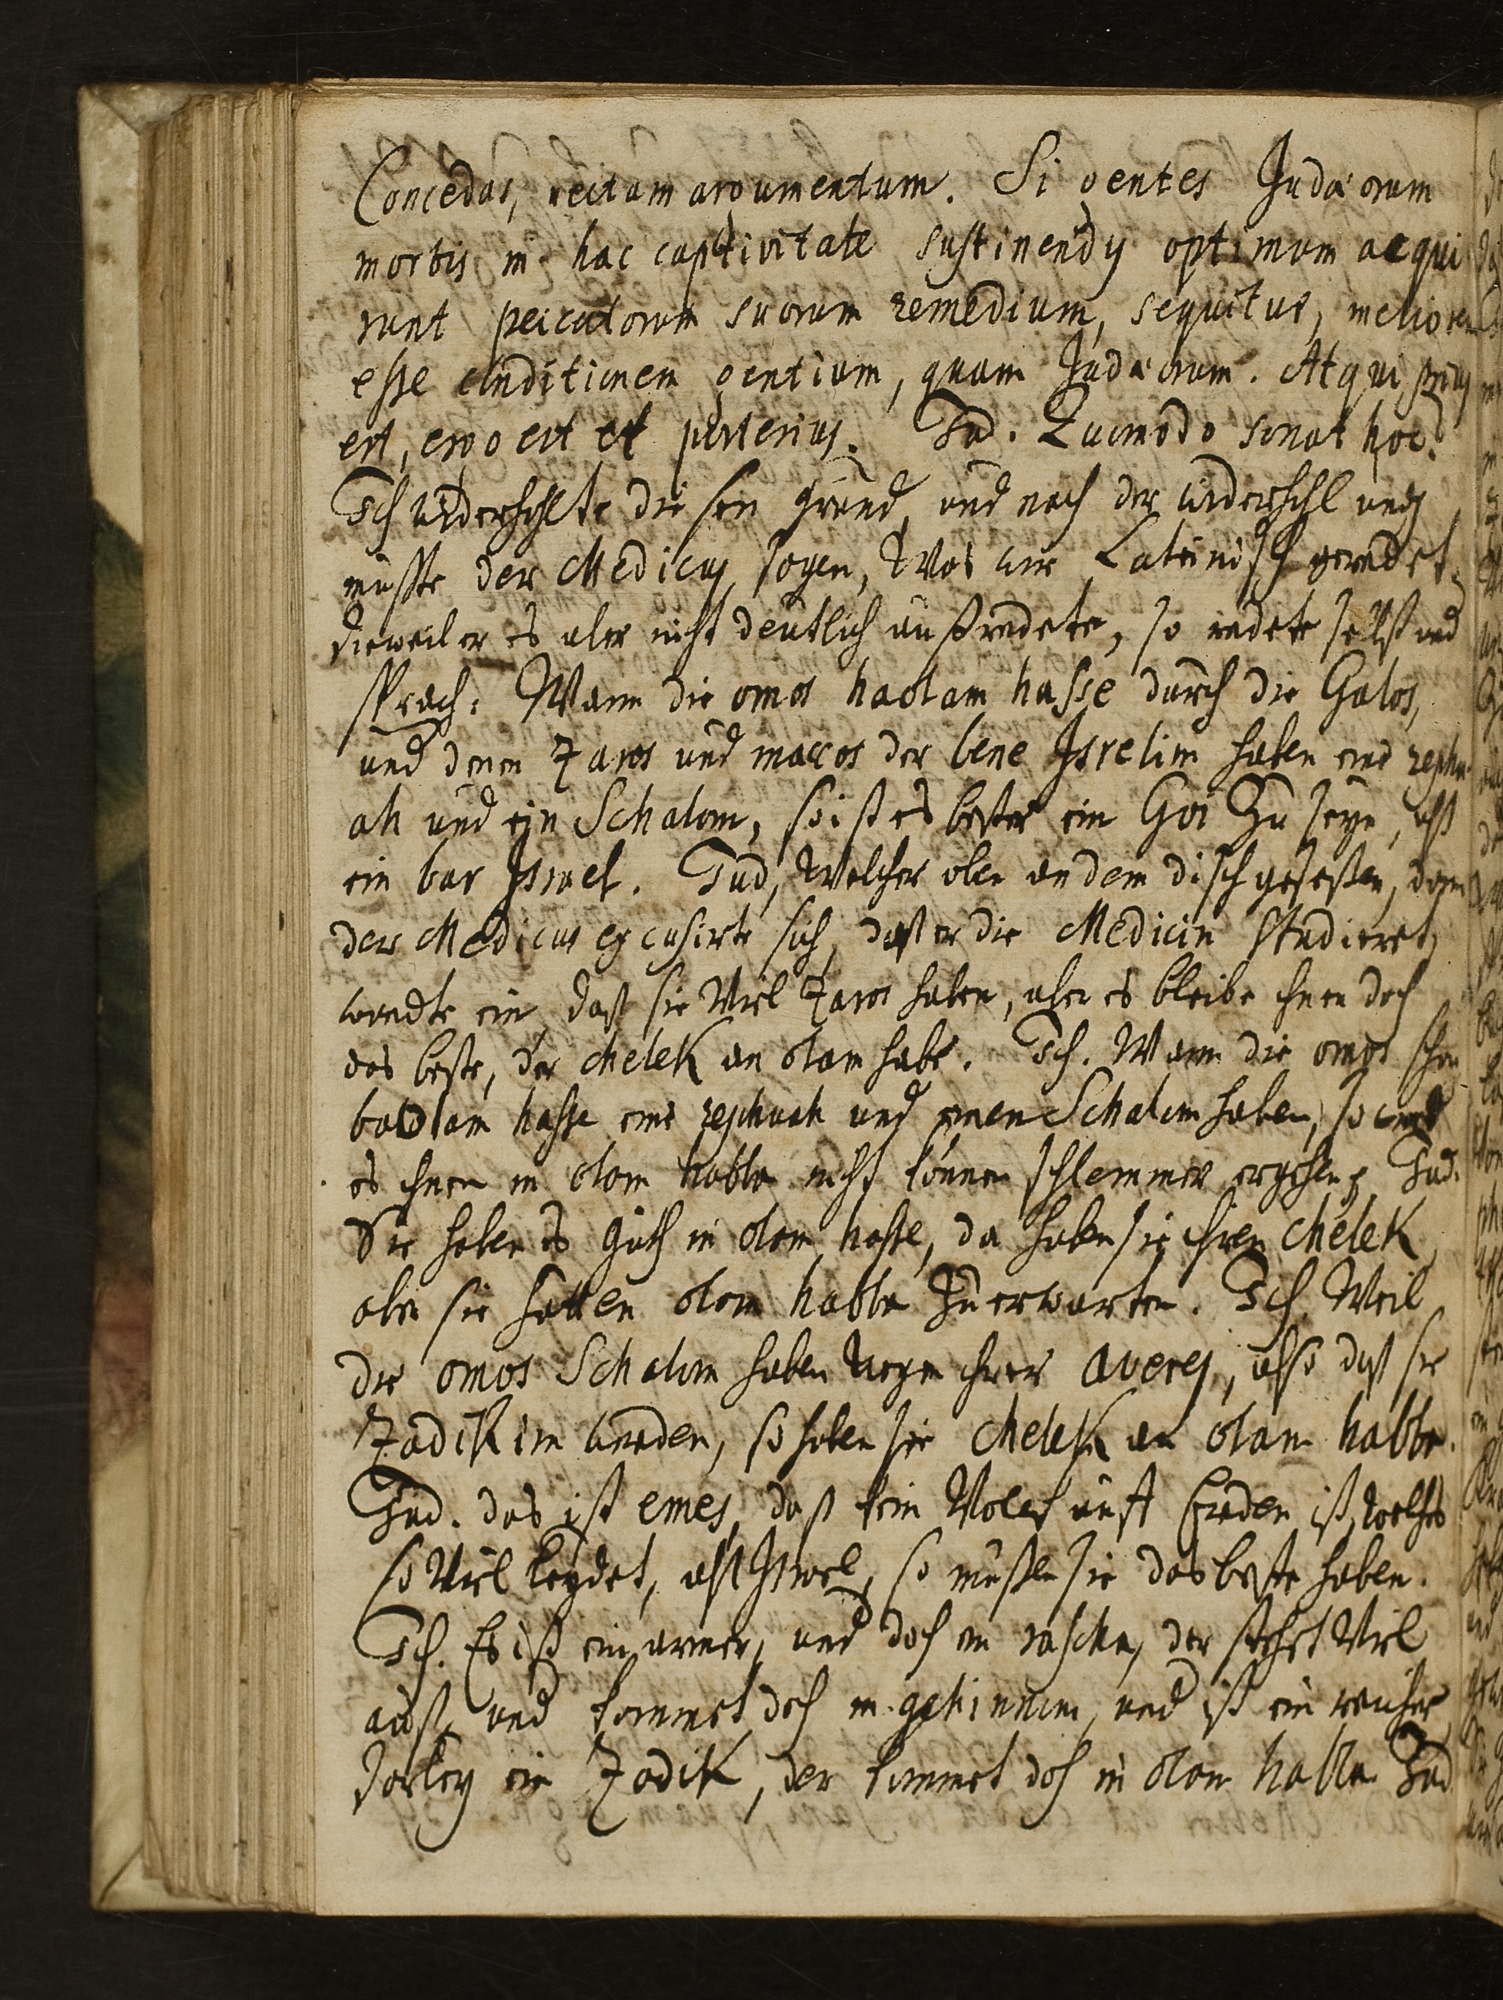 Concedas, rectum argumentum. Si gentes Judæorum
morbis in hac captivitate sustinendis optimum acqui
runt peccatorum suorum remedium, sequitur, meliorem
esse conditionem gentium, quam Judæorum. Atqui, prius
est, ergo est et posterius. Jud. Quomodo sonat hoc?
Ich widerhohlte diesen grund, und nach der widerhohlung
muste der Medicus sagen, Was wir Lateinisch geredet,
dieweil er es aber nicht deutlich außredete, so redete selbst und
sprach: Wann die omos haolam hasse durch die Galos,
und denen Zaros und maccos der bene Isrelim haben eine rephu
ah und ein Schalom, so ist es bester ein Goi zu seyn, alß
ein bar Israel. Jud, Welcher oben an dem disch geseßen, dann
der Medicus excusirte sich, daß er die Medicin studieret,
wendte ein, daß sie Viel Zaros haben, aber es bleibe ihnen doch
das beste, der chelek an olam habe. Ich. Wann die omos schon
baolam hasse eine rephuah und einen Schalom haben, so wird
es ihnen in olam habba nicht können schlemmer ergehen, Jud.
Sie haben es guth in olam hasse, da haben sie ihren chelek
aber sie hatten olam habba zu erwarten. Ich. Weil
die omos Schalom haben wegen ihrer averes, also daß sie
Zadikim werden, so haben sie chelek an olam habba.
Jud. das ist emes, daß kein Volck auff Erden ist, welches
so Viel leydet, alß Israel, so müßen sie das beste haben.
Ich. Es ist ein armer, und doch ein rascha, der stehet Viel
auß, und kommet doch in gehinnom, und ist ein reicher
darbey ein Zadik, der kommet doch in olam habba Jud